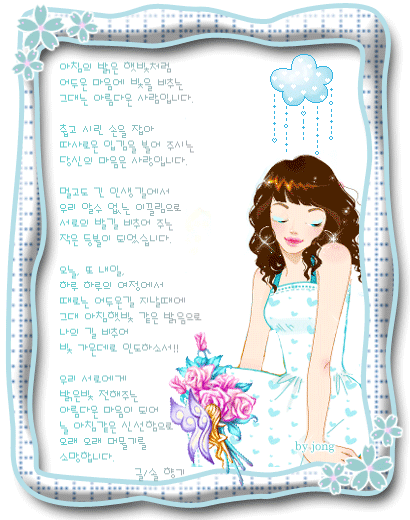 아침의 밝은 햇빛처럼
어두운 마음에 빛을 비추는
그대는 아름다운 사람입니다.
춥고 시린 손을 잡아
따사로운 입김을 불어 주시는
당신의 마음은 사랑입니다.
멀고도 긴 인생길에서
우리 알수 없는 이끌림으로
서로의 밝길 비추어 주는
작은 등불이 되었습니다.
오늘, 또 내일,
하루 하루의 여정에서
때로는 어두운길 지날때에
그대 아침햇빛 같은 밝음으로
나의 길 비추어
빛 가운데로 인도하소서!!
우리 서로에게
밝은빛 전해주는
아름다운 마음이 되어
늘 아침같은 신선함으로
오래 오래 머물기를
소망합니다.
글/솔 향기
by jong